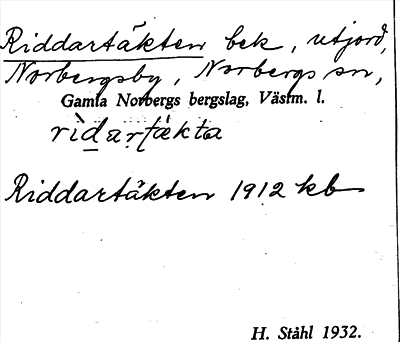 Riddartäkten bek, utjord,
Norbergsby, Norbergs sn,
Gamla Norbergs bergslag, Västm. l.
rìdaṛṭäkta
Riddartäkten 1912 kb
H. Ståhl 1932.